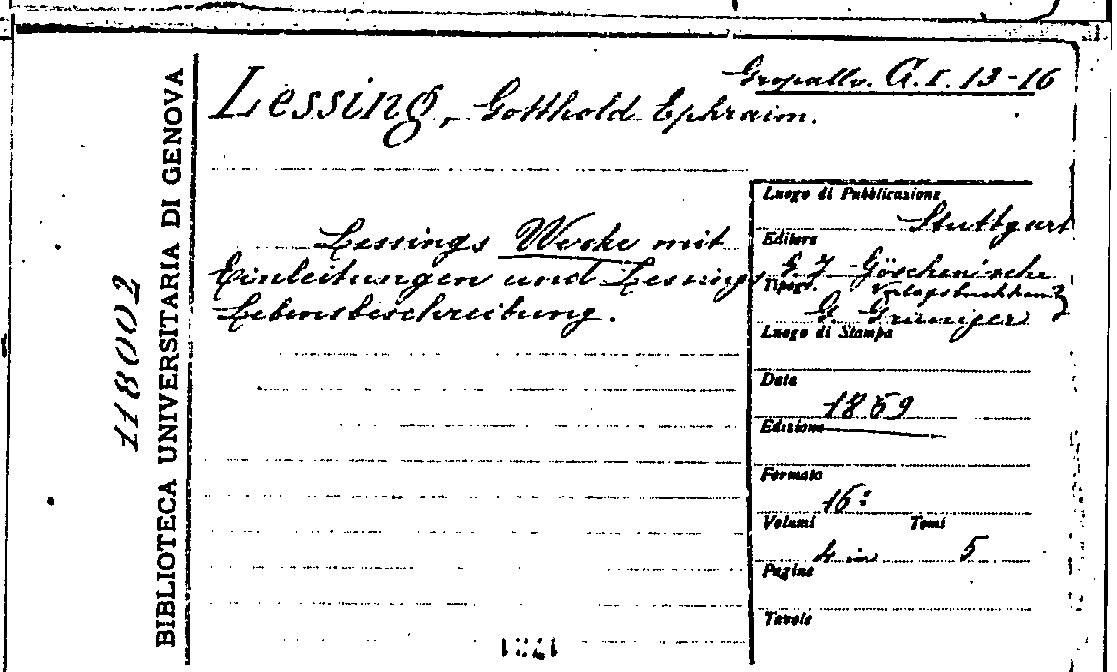 Gropallo. G.I. 13-16
Lessing, Gotthold Ephraim.
Lessings Werke mit
Einleitungen und Lessings
Lebensbeschreibung.
Luogo di Pubblicazione
Stuttgart
Editore
G. J. Göschen'sche
Verlagsbuchhandlg
Tipogr.
G. Grüninger
Luogo di Stampa
Data
1869
Edizione
Formato
16:
Volumi Tomi
4 in 5
Pagine
Tavole
BIBLIOTECA UNIVERSITARIA DI GENOVA
118002